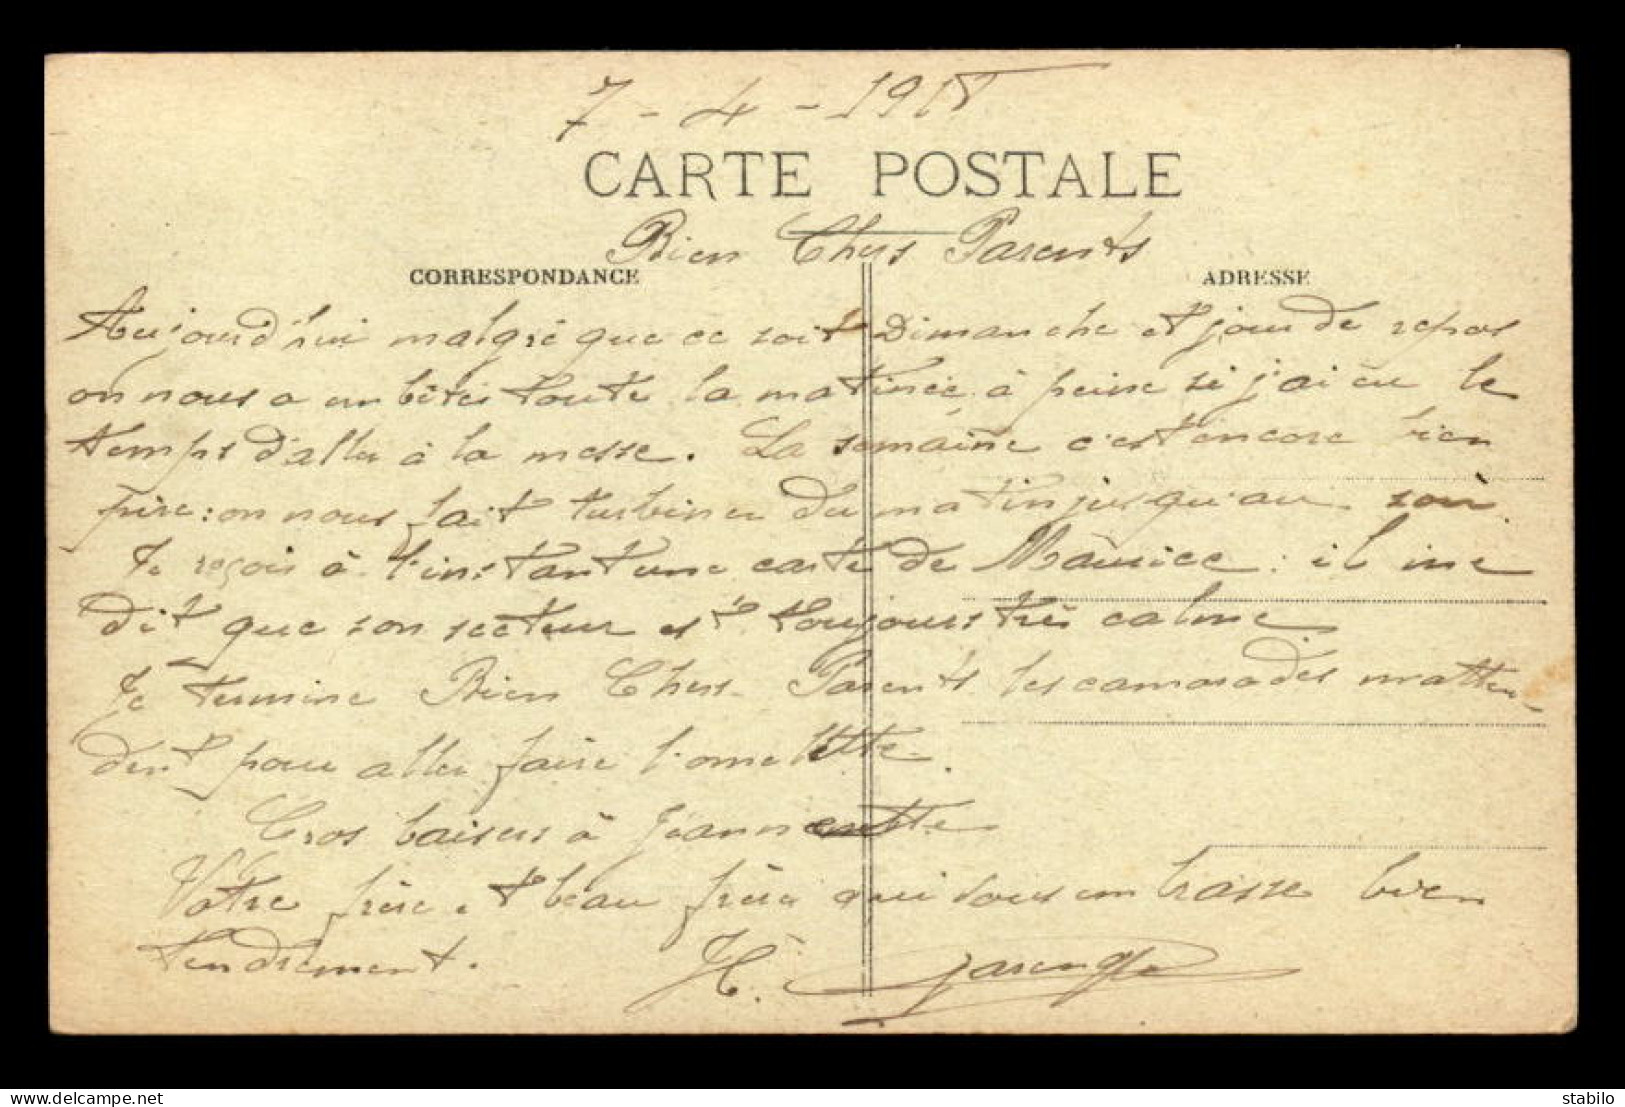 7 - 4 - 1918
CARTE POSTALE
Bien Chers Parents
CORRESPONDANCE
ADRESSE
Aujourd'hui malgré que ce soit Dimanche et jour de repos
on nous a embêtés toute la matinée à peine si j'ai eu le
temps d'aller à la messe. La semaine c'est encore bien
pire : on nous fait turbiner du matin jusqu'au soir.
Je reçois à l'instant une carte de Maurice : il me
dit que son secteur est toujours très calme
Je termine Bien Chers Parents les camarades m'atten-
dent pour aller faire l'omelette.
Gros baisers à Jeannette
Votre frère et beau frère qui vous embrasse bien
tendrement. H.
delcampe.net
stabilo